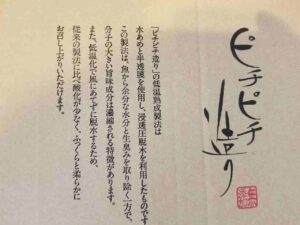 ピチピチ造り
「ピチピチ造り」の低温熟成製法は
水あめと半透膜を使用し、浸透圧脱水を利用したものです
この製法は、魚から余分な水分と生臭みを取り除く一方で、
分子の大きい旨味成分は濃縮される特徴があります。
また、低温化で風にあてずに脱水するため、
従来の製法に比べ酸化が少なく、ふっくらと柔らかに
お召し上がりいただけます。